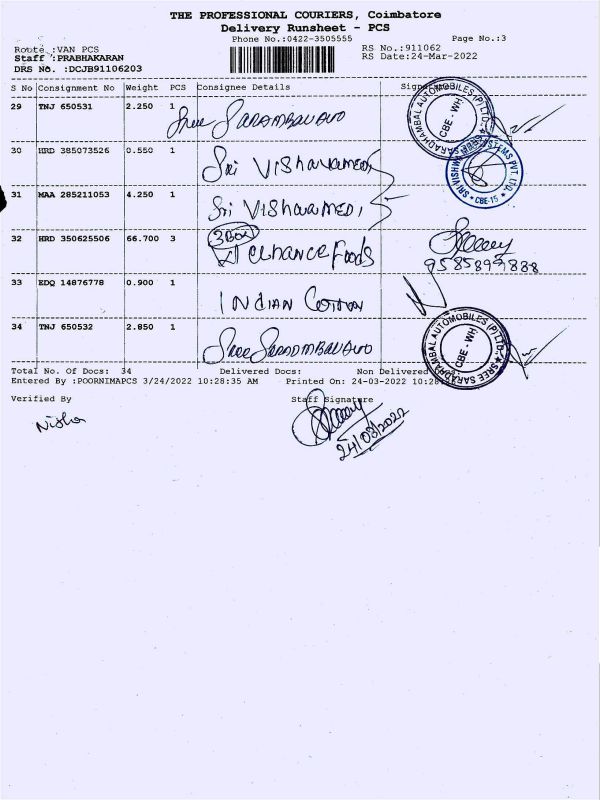 THE PROFESSIONAL COURIERS, Coimbatore
Delivery Runsheet - PCS
Phone No.:0422-3505555 Page No.:3
Route :VAN PCS RS No.:911062
Staff :PRABHAKARAN RS Date:24-Mar-2022
DRS NO. :DCJB91106203
S No Consignment No Weight PCS Consignee Details Signature
29 TNJ 650531 2.250 1 Sree
30 HRD 385073526 0.550 1 Sri
31 MAA 285211053 4.250 1 Sri VISHWAMEDI
32 HRD 350625506 66.700 3 3 Box Foods
9585899888
33 EDQ 14876778 0.900 1 INDIAN COTTON
34 TNJ 650532 2.850 1 Sree
SREE SARADHAMBAL AUTOMOBILES (P) LTD.
CBE - WH
CBE-15
SREE SARADHAMBAL AUTOMOBILES (P) LTD.
CBE - WH
Total No. Of Docs: 34 Delivered Docs: Non Delivered
Entered By :POORNIMAPCS 3/24/2022 10:28:35 AM Printed On: 24-03-2022
Verified By Staff Signature
Nisha
24/03/2022